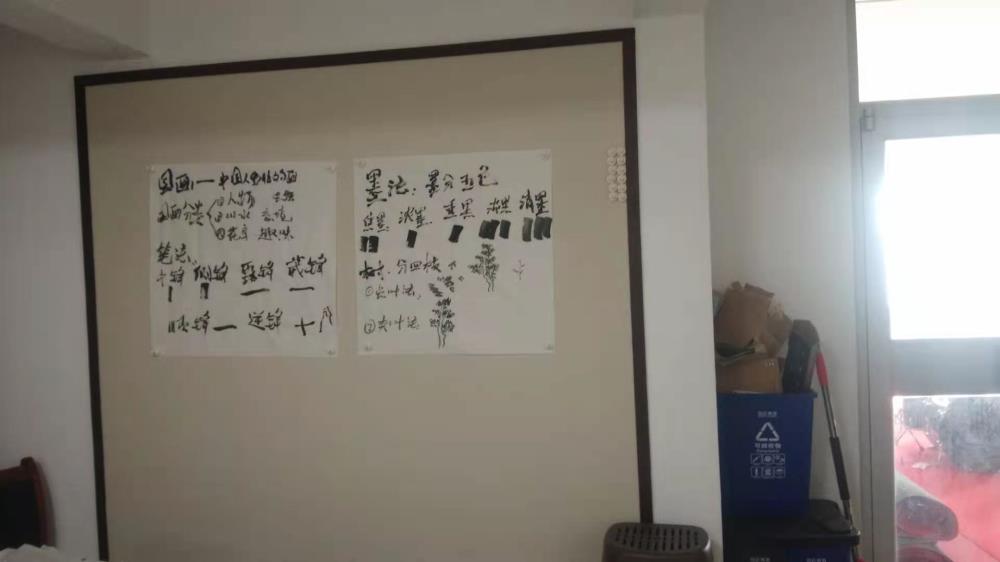 国画:一中国人画的画
国画分类
①人物
②山水 意境
③花鸟 趣味
笔法:
中锋 侧锋 露锋 藏锋
顺锋 逆锋
墨法:墨分五色
焦墨 浓墨 重墨 淡墨 清墨
树:分四枝
①点叶法,
②夹叶法:
可回收物